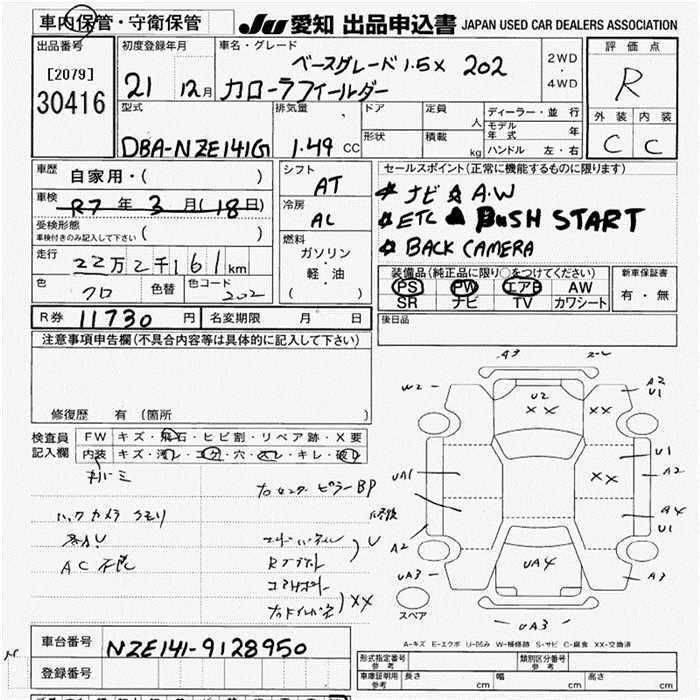 車内保管・守衛保管
JU 愛知 出品申込書 JAPAN USED CAR DEALERS ASSOCIATION
出品番号
[2079]
30416
初度登録年月
21 12月
車名・グレード
ベースグレード 1.5X 202
カローラフィールダー
2WD
・
4WD
評価点
R
外装 内装
C C
型式
DBA-NZE141G
排気量
1.49 CC
ドア
形状
定員
人
積載
kg
ディーラー・並行
モデル年式 年
ハンドル 左・右
車歴 自家用・( )
車検 R7年3月(18日)
受検形態
車検付きのみ記入して下さい ( )
走行 22万2千161km
色 クロ 色替 色コード 202
シフト
AT
冷房
AC
燃料
ガソリン
・
軽・油
( )
セールスポイント(正常に機能するものに限ります)
ナビ A.W
ETC PUSH START
BACK CAMERA
装備品(純正品に限り○をつけてください)
PS PW エアB AW
SR ナビ TV カワシート
新車保証書
有・無
R券 11730円 名変期限 月 日
後日品
注意事項申告欄(不具合内容等は具体的に記入して下さい)
修復歴 有 (箇所 )
検査員
記入欄
FW キズ・飛石・ヒビ割・リペア跡・X要
内装 キズ・汚レ・コゲ・穴・スレ・キレ・破レ
バックカメラ クモリ
AC不良
A3
W2
U2
XX
XX
A2
U1
UA1
XX
U1
A2
A4
U1
A2
UA3
UA4
A3
UA3
XX
スペア
A-キズ E-エクボ U-凹み W-補修跡 S-サビ C-腐食 XX-交換済
車台番号 NZE141-9128950
登録番号
形式指定番号
参考
類別区分番号
参考
車庫証明用
参考
長さ cm 幅 cm 高さ cm